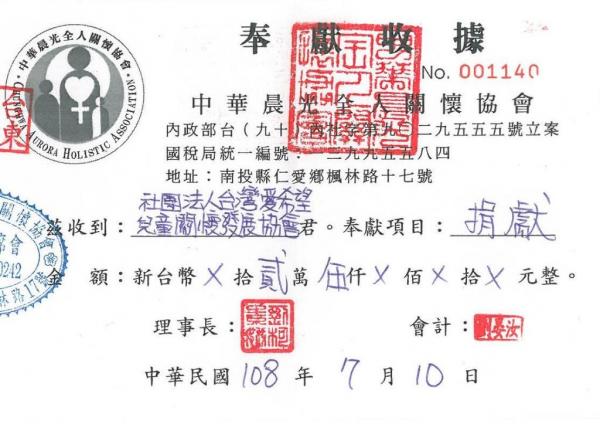 奉獻收據
No. 001140
中華晨光全人關懷協會
CHINESE AURORA HOLISTIC ASSOCIATION
中華晨光全人關懷協會
內政部台（九十）內社字第九〇二九五五五號立案
國稅局統一編號：一二九九五五八四
地址：南投縣仁愛鄉楓林路十七號
茲收到：社團法人台灣愛希望兒童關懷發展協會君。奉獻項目：捐獻
金額：新台幣X拾貳萬伍仟X佰X拾X元整。
理事長：
會計：劉晏汝
中華民國108年7月10日